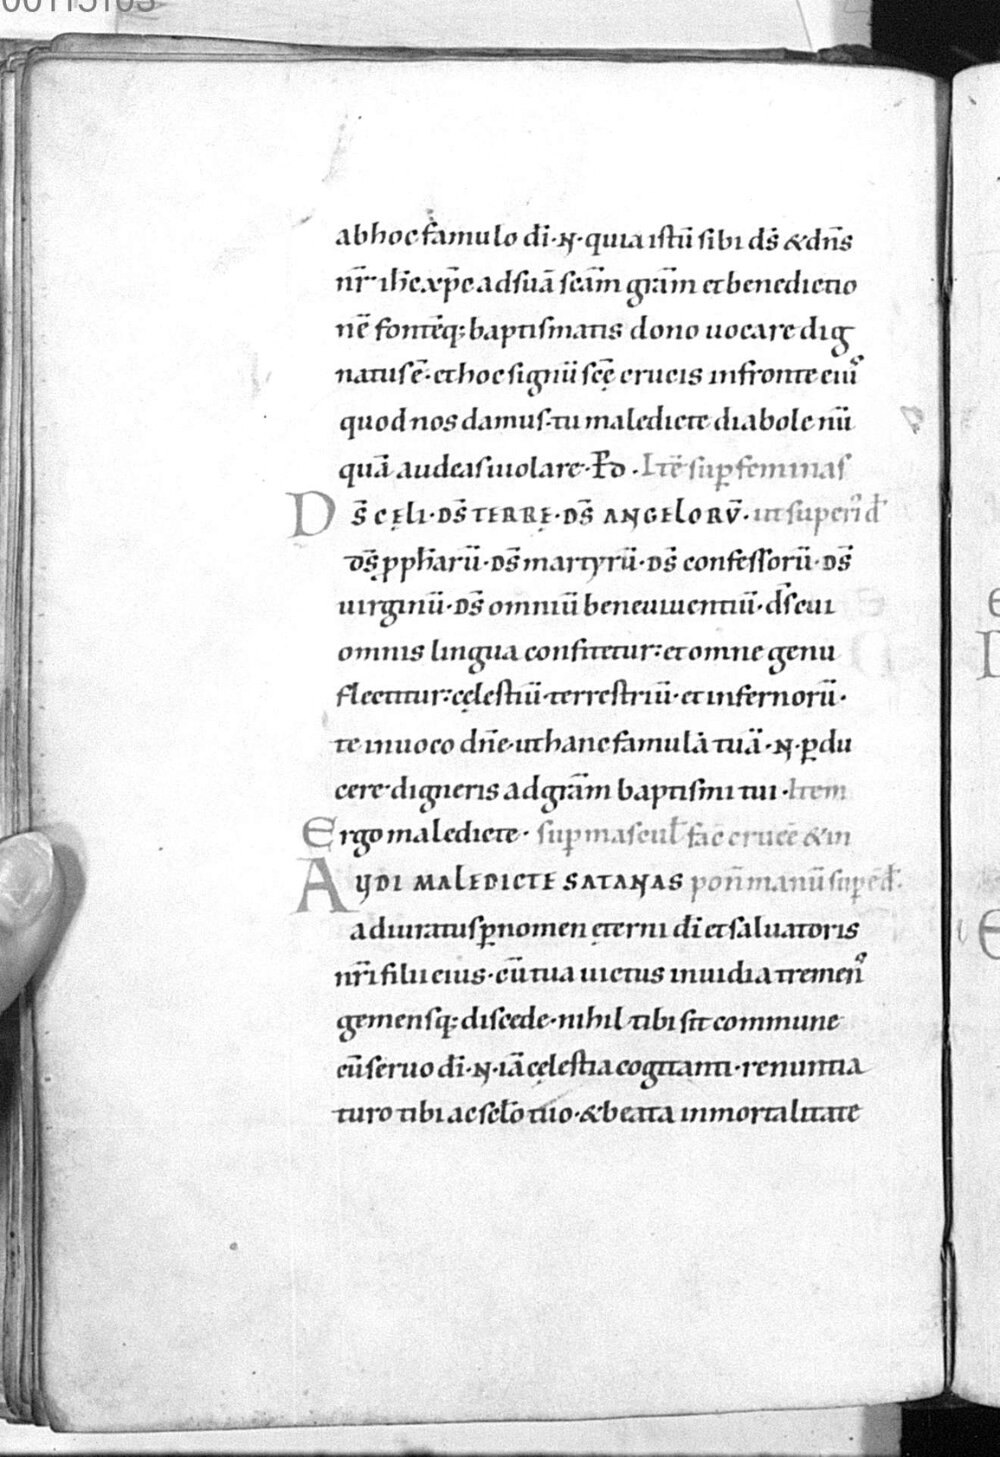 ab hoc famulo dī·N·quia istū sibi d̄s &dn̄s
nr̄ ih̄c xp̄c ad suā sc̄am grām et benedictio
nē fontēq; baptismatis dono uocare dig
natus ē· et hoc signū sc̄ę crucis in fronte eiuˢ
quod nos damus·tu maledicte diabole nū
quā audeas uiolare· P̄d· Itē sup feminas
D̄s cęli·D̄s terrę·D̄s angelorū· ut super id̄
D̄s pphārū·D̄s martyrū·D̄s confessorū·D̄s
uirginū·D̄s omniū bene uiuentiū·d̄s cui
omnis lingua confitetur: et omne genu
flectitur: cęlestiū·terrestriū·et infernorū·
te inuoco dn̄e·ut hanc famulā tuā·N·pdu
cere·digneris ad grām baptismi tui·Item
Ergo maledicte· sup mascul̄ fac crucē & in
Audi maledicte satanas pon̄ manū sup
adiuratus p nomen ęterni dī et saluatoris
nr̄i filii eius·cū tua uictus inuidia tremenˢ
gemensq; discede·nihil tibi sit commune
cū seruo dī·N·iā cęlestia cogitanti·renuntia
turo tibi ac sclō tuo·&beata inmortalitate